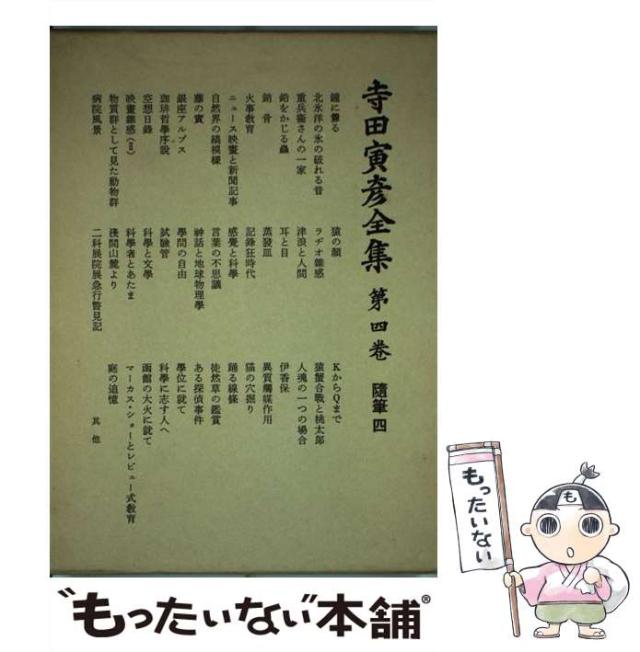 寺田寅彦全集 第四巻 隨筆四
鐘に釁る
北氷洋の氷の破れる音
重兵衞さんの一家
鉛をかじる蟲
銷骨
火事教育
ニュース映畫と新聞記事
自然界の縞模樣
藤の實
銀座アルプス
珈琲哲學序説
空想日錄
映畫雜感(Ⅱ)
物質群として見た動物群
病院風景
猿の顏
ラヂオ雜感
津浪と人間
耳と目
蒸發皿
記錄狂時代
感覺と科學
言葉の不思議
神話と地球物理學
學問の自由
試驗管
科學と文學
科學者とあたま
淺間山麓より
二科展院展急行瞥見記
KからQまで
猿蟹合戰と桃太郎
人魂の一つの場合
伊香保
異質觸媒作用
猫の穴掘り
踊る線條
徒然草の鑑賞
ある探偵事件
學位に就て
科學に志す人へ
函館の大火に就て
マーカス・ショーとレビュー式教育
庭の追憶
其他
もったいない
も
“もったいない”本舗®